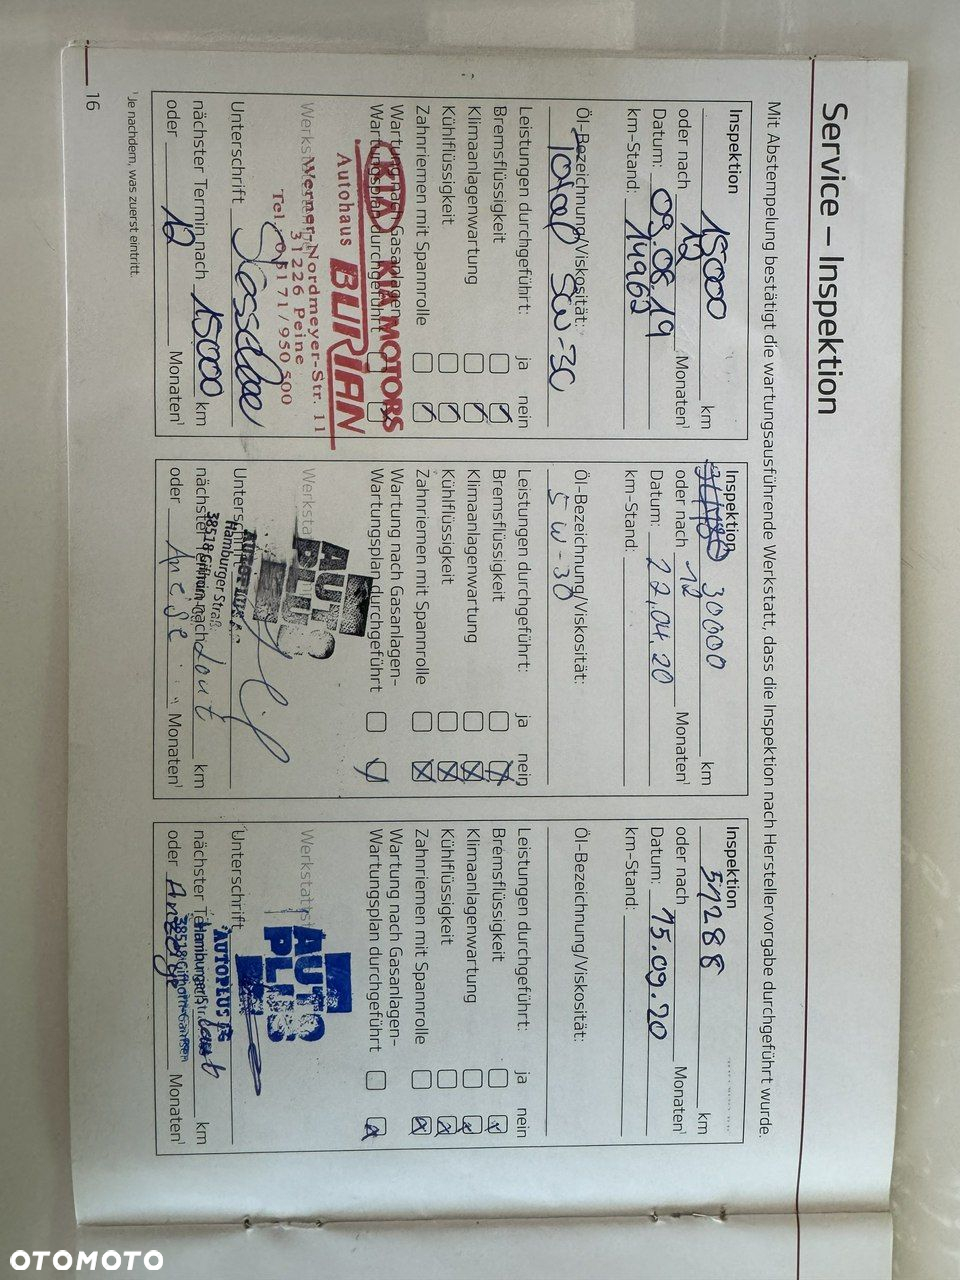 Service – Inspektion
Mit Abstempelung bestätigt die wartungsausführende Werkstatt, dass die Inspektion nach Herstellervorgabe durchgeführt wurde.
Inspektion
15000 km
oder nach 12 Monaten¹
Datum: 09.08.19
km-Stand: 14962
Öl-Bezeichnung/Viskosität:
Total 5W-30
Leistungen durchgeführt: ja nein
Bremsflüssigkeit
Klimaanlagenwartung
Kühlflüssigkeit
Zahnriemen mit Spannrolle
Wartung nach Gasanlagen-
Wartungsplan durchgeführt
KIA KIA MOTORS
Autohaus BURIAN
Werner-Nordmeyer-Str. 11
31226 Peine
Tel 05171/950 500
Unterschrift
nächster Termin nach 15000 km
oder 12 Monaten¹
Inspektion
30000 km
oder nach 12 Monaten¹
Datum: 22.04.20
km-Stand:
Öl-Bezeichnung/Viskosität:
5W-30
Leistungen durchgeführt: ja nein
Bremsflüssigkeit
Klimaanlagenwartung
Kühlflüssigkeit
Zahnriemen mit Spannrolle
Wartung nach Gasanlagen-
Wartungsplan durchgeführt
Werksta
AUTO
PLUS
Unterschrift
Hamburger Straß
38518 Gifhorn
nächster Termin nach laut km
oder Monaten¹
Inspektion
51288 km
oder nach Monaten¹
Datum: 15.09.20
km-Stand:
Öl-Bezeichnung/Viskosität:
Leistungen durchgeführt: ja nein
Bremsflüssigkeit
Klimaanlagenwartung
Kühlflüssigkeit
Zahnriemen mit Spannrolle
Wartung nach Gasanlagen-
Wartungsplan durchgeführt
Werkstatts
AUTO
PLUS
Unterschrift
AUTOPLUS
Hamburger Str.
38518 Gifhorn-Gamsen
nächster Te laut km
oder Anzeige Monaten¹
¹Je nachdem, was zuerst eintritt.
16
OTOMOTO